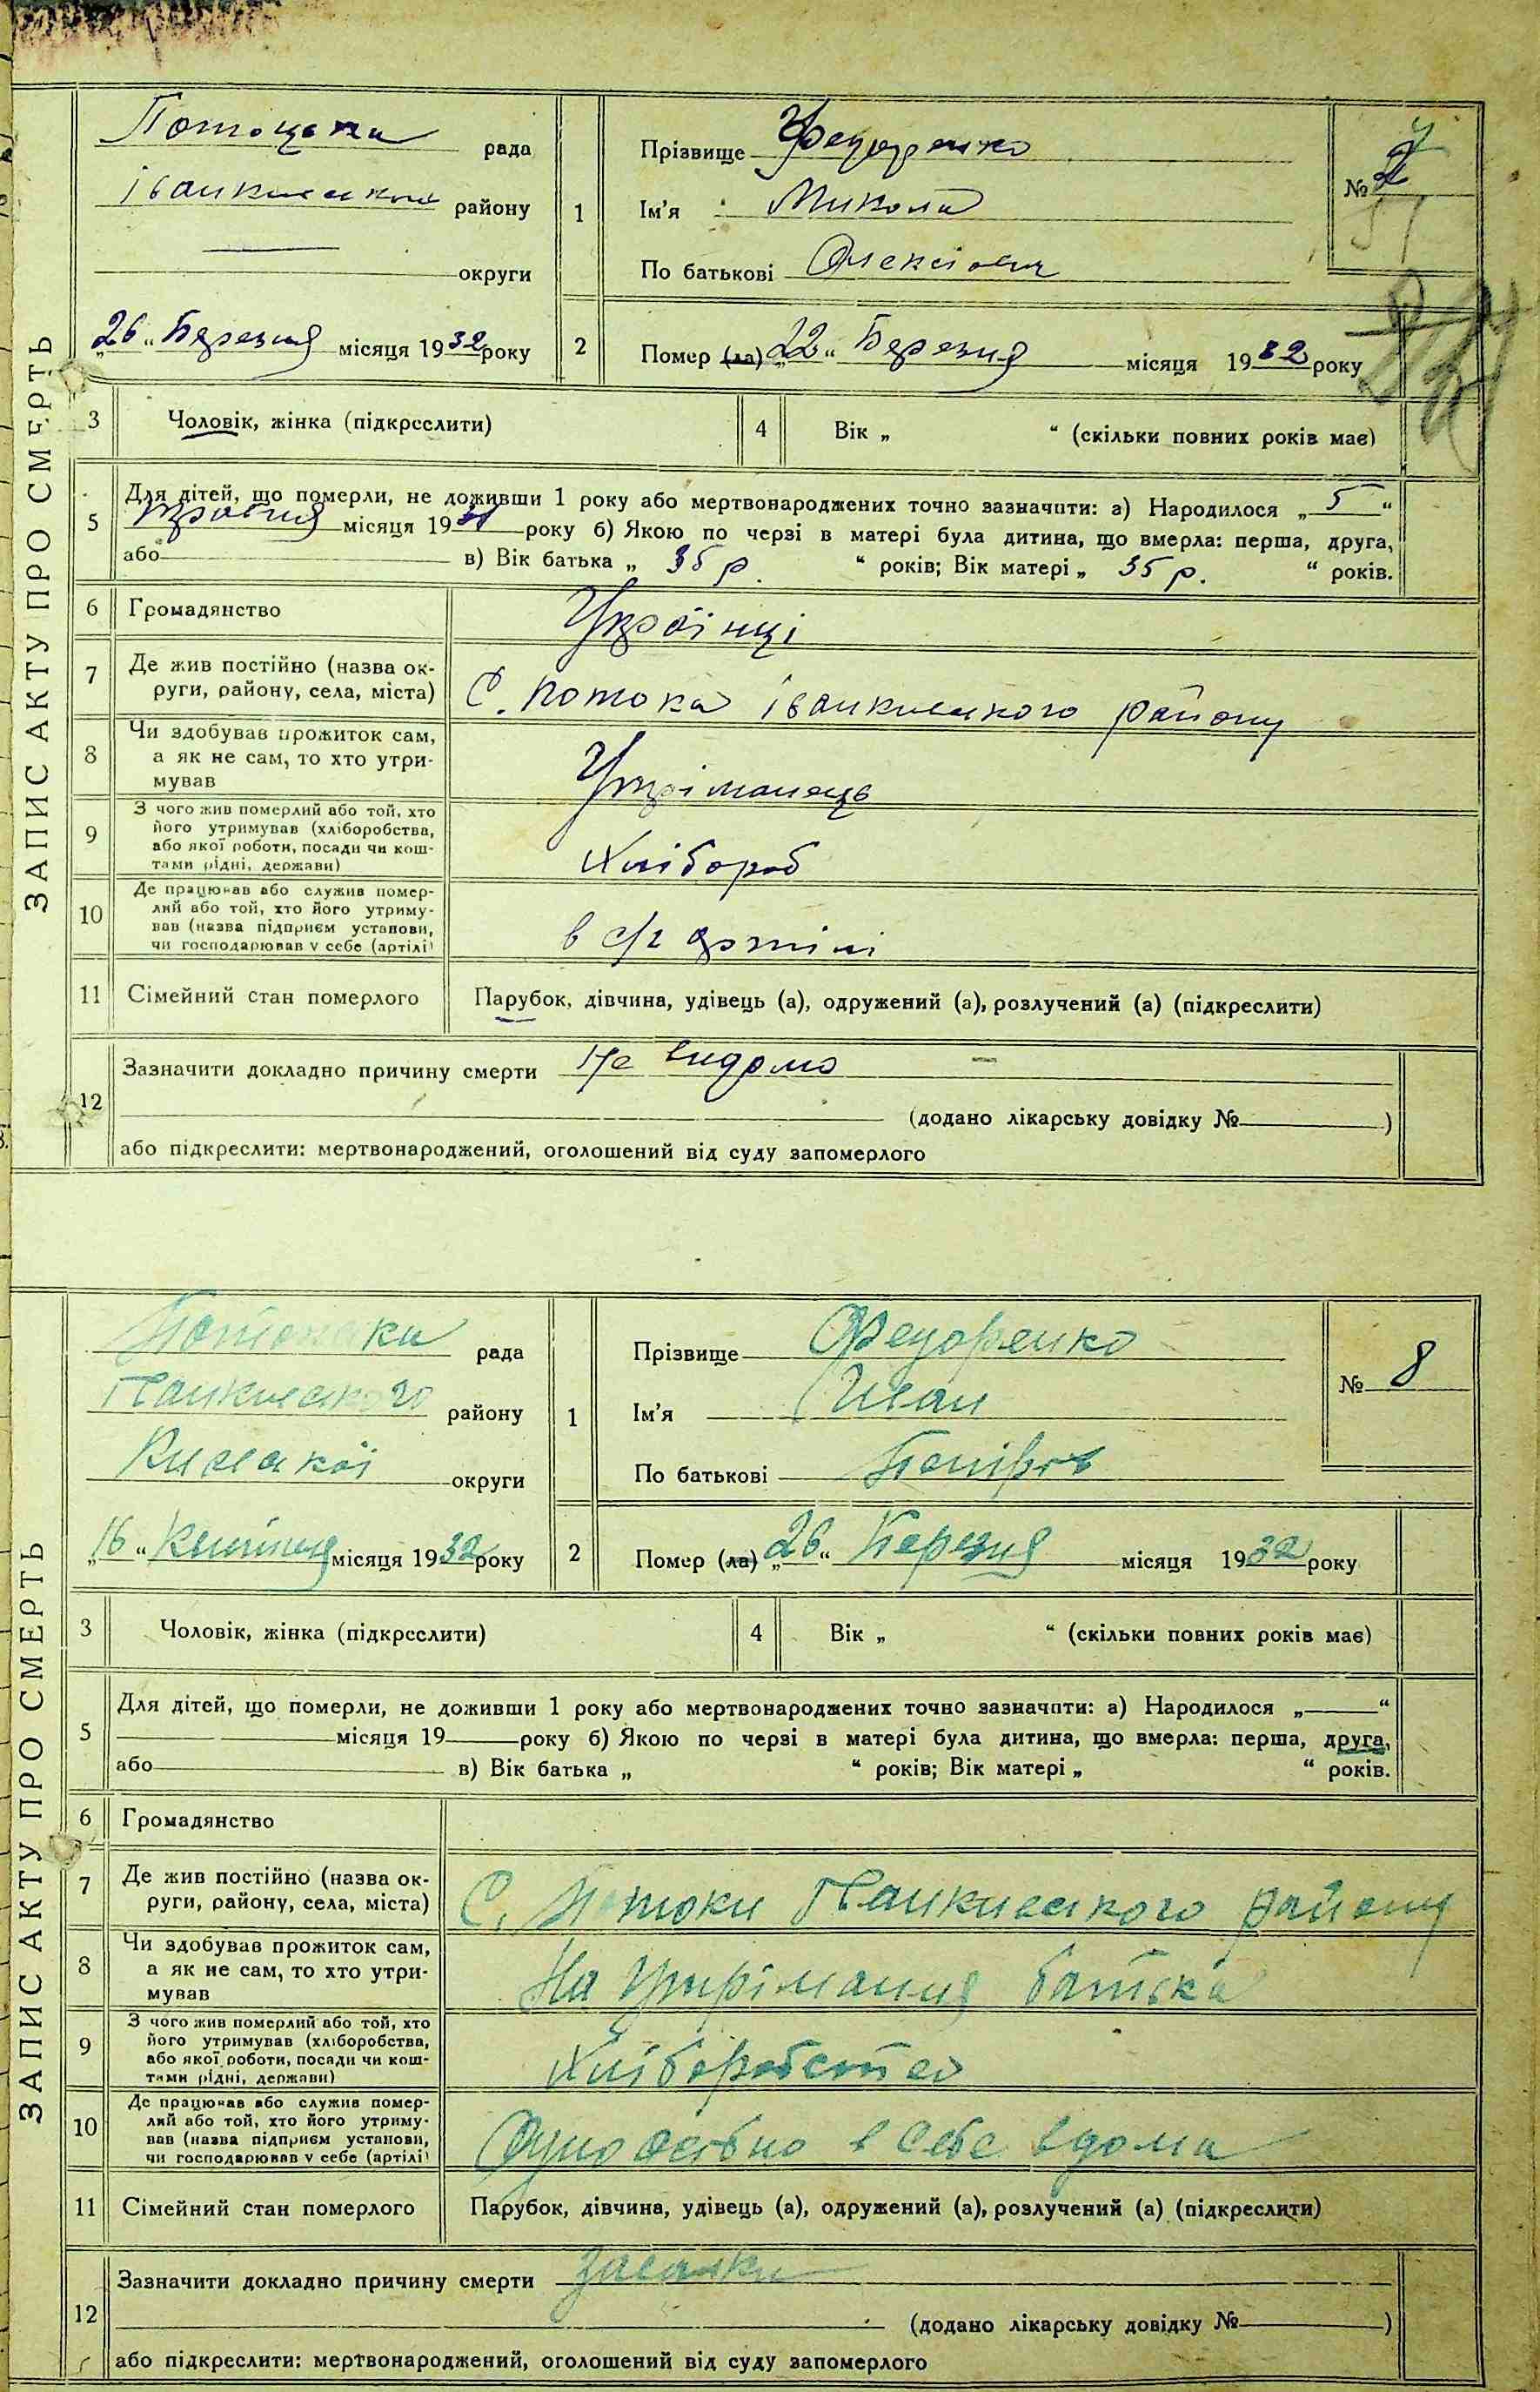 ЗАПИС АКТУ ПРО СМЕРТЬ
рада
району
округи
„26“ Березня місяця 1932 року
1
Прізвище Федоренко
Ім'я Микола
По батькові Олексіович
№
2
Помер (ла) „22“ Березня місяця 1932 року
3
Чоловік, жінка (підкреслити)
4
Вік „ “ (скільки повних років має)
5
Для дітей, що померли, не доживши 1 року або мертвонароджених точно зазначити: а) Народилося „5“
місяця 19 року б) Якою по черзі в матері була дитина, що вмерла: перша, друга,
або в) Вік батька „ 35 р. “ років; Вік матері „ 35 р. “ років.
6
Громадянство
Українці
7
Де жив постійно (назва ок-
руги, району, села, міста)
С. Потока району
8
Чи здобував прожиток сам,
а як не сам, то хто утри-
мував
Утріманець
9
З чого жив померлий або той, хто
його утримував (хліборобства,
або якої роботи, посади чи кош-
тами рідні, держави)
Хлібороб
10
Де працював або служив помер-
лий або той, хто його утриму-
вав (назва підприєм установи,
чи господарював у себе (артілі)
в с/г артілі
11
Сімейний стан померлого
Парубок, дівчина, удівець (а), одружений (а), розлучений (а) (підкреслити)
12
Зазначити докладно причину смерти Не видомо
(додано лікарську довідку № )
або підкреслити: мертвонароджений, оголошений від суду запомерлого
ЗАПИС АКТУ ПРО СМЕРТЬ
рада
району
округи
„16“ місяця 1932 року
1
Прізвище Федоренко
Ім'я Иван
По батькові
№ 8
2
Помер (ла) „26“ Березня місяця 1932 року
3
Чоловік, жінка (підкреслити)
4
Вік „ “ (скільки повних років має)
5
Для дітей, що померли, не доживши 1 року або мертвонароджених точно зазначити: а) Народилося „ “
місяця 19 року б) Якою по черзі в матері була дитина, що вмерла: перша, друга,
або в) Вік батька „ “ років; Вік матері „ “ років.
6
Громадянство
7
Де жив постійно (назва ок-
руги, району, села, міста)
С. Потоки району
8
Чи здобував прожиток сам,
а як не сам, то хто утри-
мував
На утрімания батька
9
З чого жив померлий або той, хто
його утримував (хліборобства,
або якої роботи, посади чи кош-
тами рідні, держави)
Хліборобство
10
Де працював або служив помер-
лий або той, хто його утриму-
вав (назва підприєм установи,
чи господарював у себе (артілі)
Одноосібно в себе вдома
11
Сімейний стан померлого
Парубок, дівчина, удівець (а), одружений (а), розлучений (а) (підкреслити)
12
Зазначити докладно причину смерти
(додано лікарську довідку № )
або підкреслити: мертвонароджений, оголошений від суду запомерлого